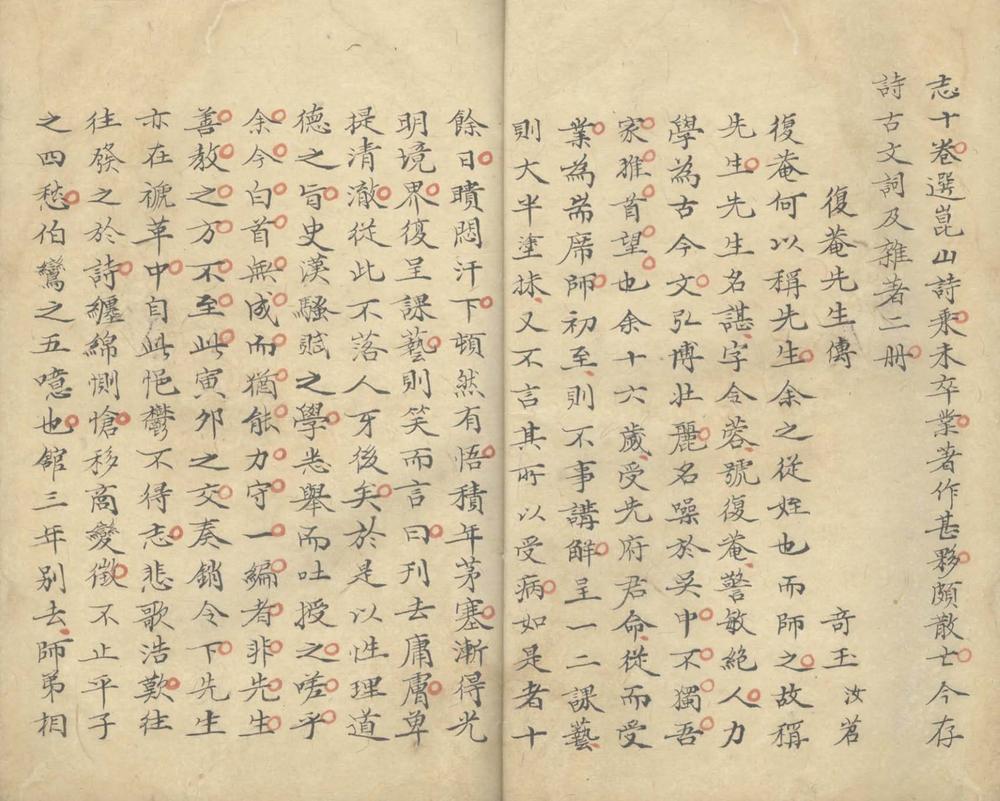 志十卷選崑山詩乘未卒業著作甚夥頗散亡今存
詩古文詞及雜著二冊
復菴先生傳
奇玉 汝茗
復菴何以稱先生余之從姪也而師之故稱
先生先生名諶字令蓉號復菴警敏絕人力
學為古今文弘博壯麗名噪於吳中不獨吾
家推首望也余十六歲受先府君命從而受
業為耑席師初至則不事講解呈一二課藝
則大半塗抹又不言其所以受病如是者十
餘日瞶悶汗下頓然有悟積年茅塞漸得光
明境界復呈課藝則笑而言曰刊去庸膚卑
提清澈從此不落人牙後矣於是以性理道
德之旨史漢騷賦之學悉舉而吐授之嗟乎
余今白首無成而猶能力守一編者非先生
善教之方不至此寅夘之交奏銷令下先生
亦在褫革中自此悒鬱不得志悲歌浩歎往
往發之於詩纏綿惻愴移商變徵不止平子
之四愁伯鸞之五噫也館三年別去師弟相